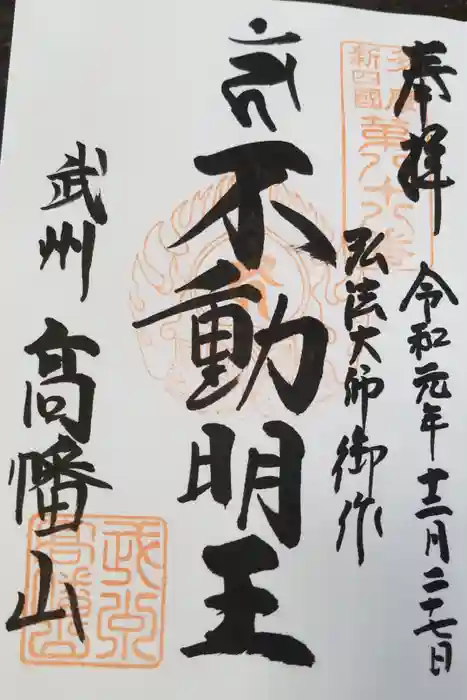 奉拝
令和元年十二月二十七日
多摩
新四國
第八十八番
弘法大師御作
不動明王
武州
高幡山